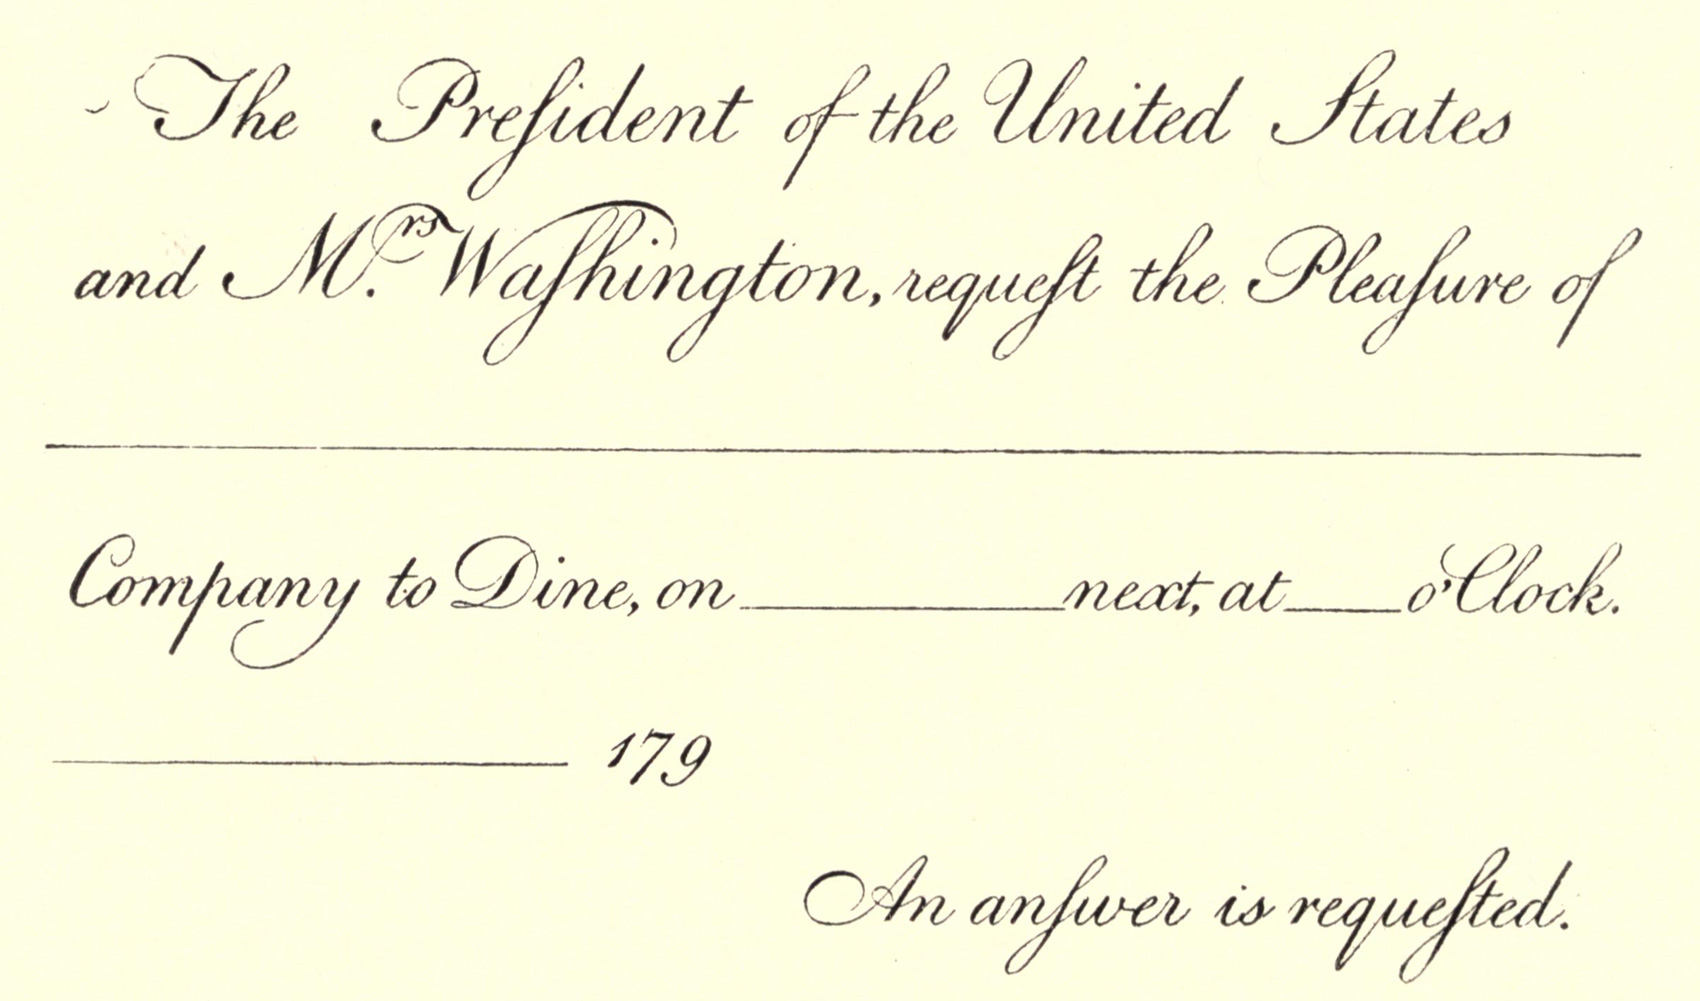 The Preſident of the United States
and M.rs Waſhington, requeſt the Pleaſure of
Company to Dine, on next, at o'Clock.
179
An anſwer is requeſted.